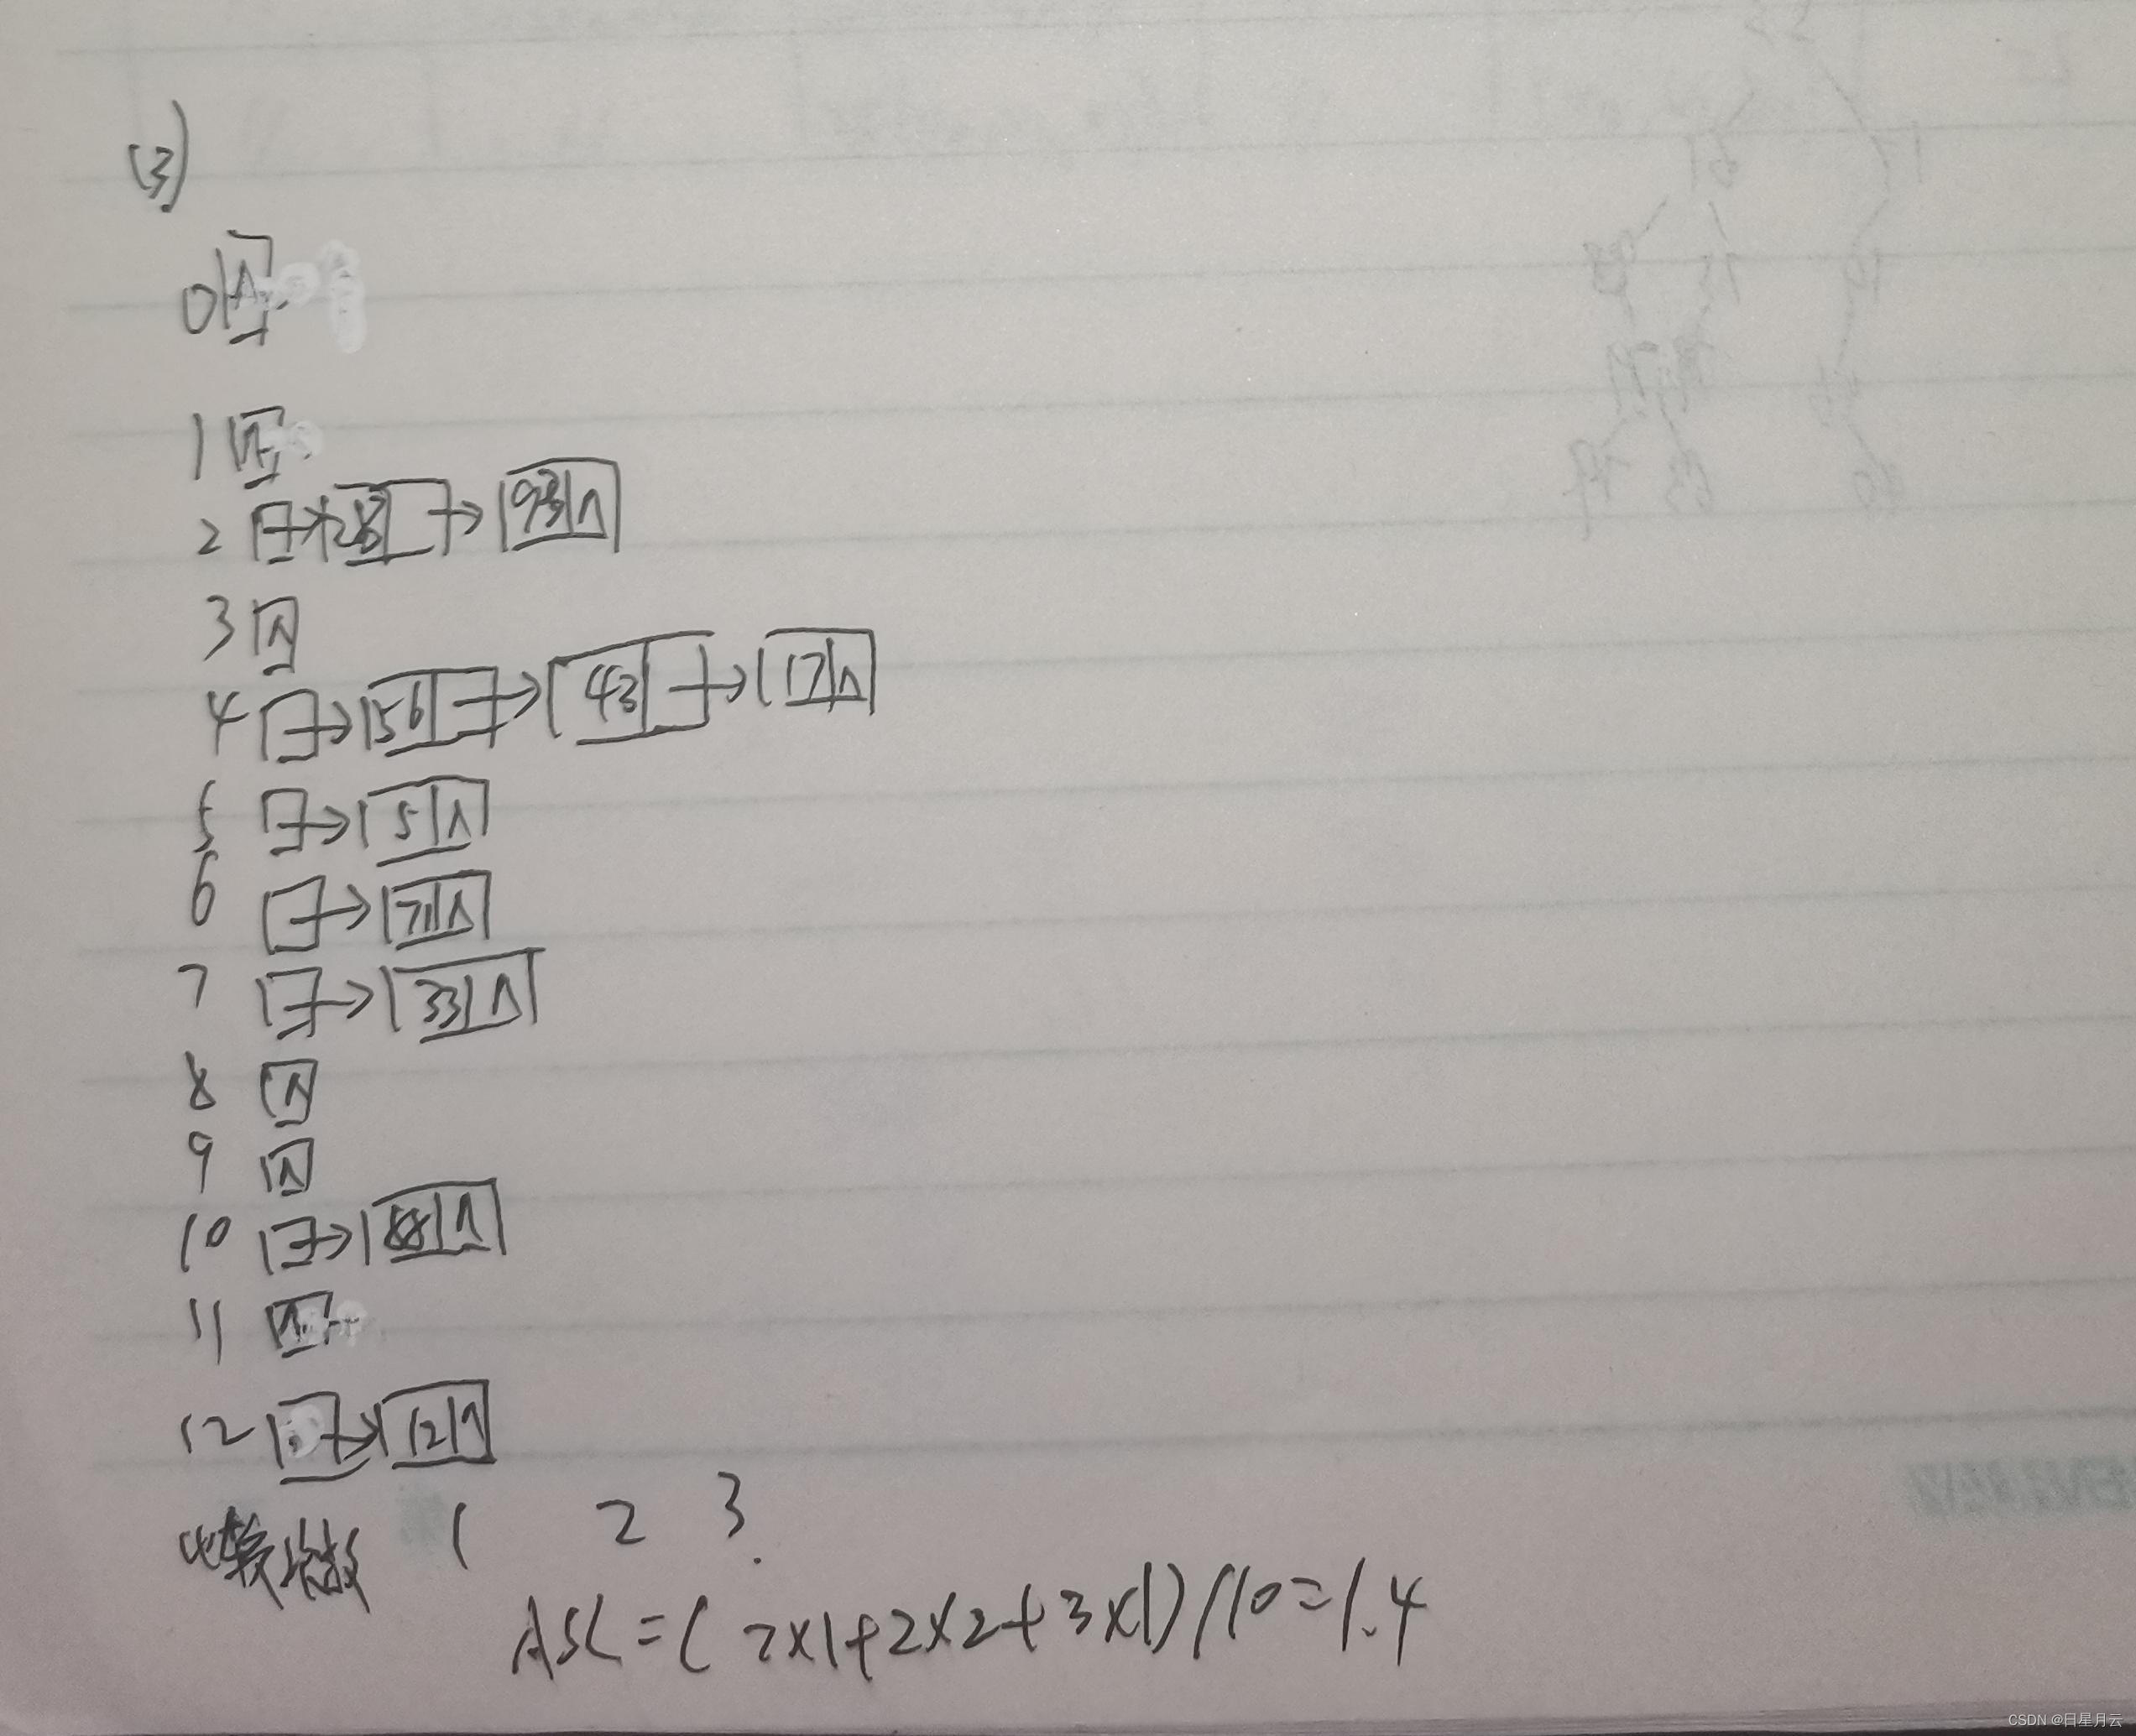 (3)
0 ∧
1 ∧
2 → 28 → 93 ∧
3 ∧
4 → 56 → 43 → 17 ∧
5 → 5 ∧
6 → 71 ∧
7 → 33 ∧
8 ∧
9 ∧
10 → 88 ∧
11 ∧
12 → 12 ∧
比较次数 1 2 3
ASL=(7×1+2×2+3×1)/10=1.4
CSDN @日星月云